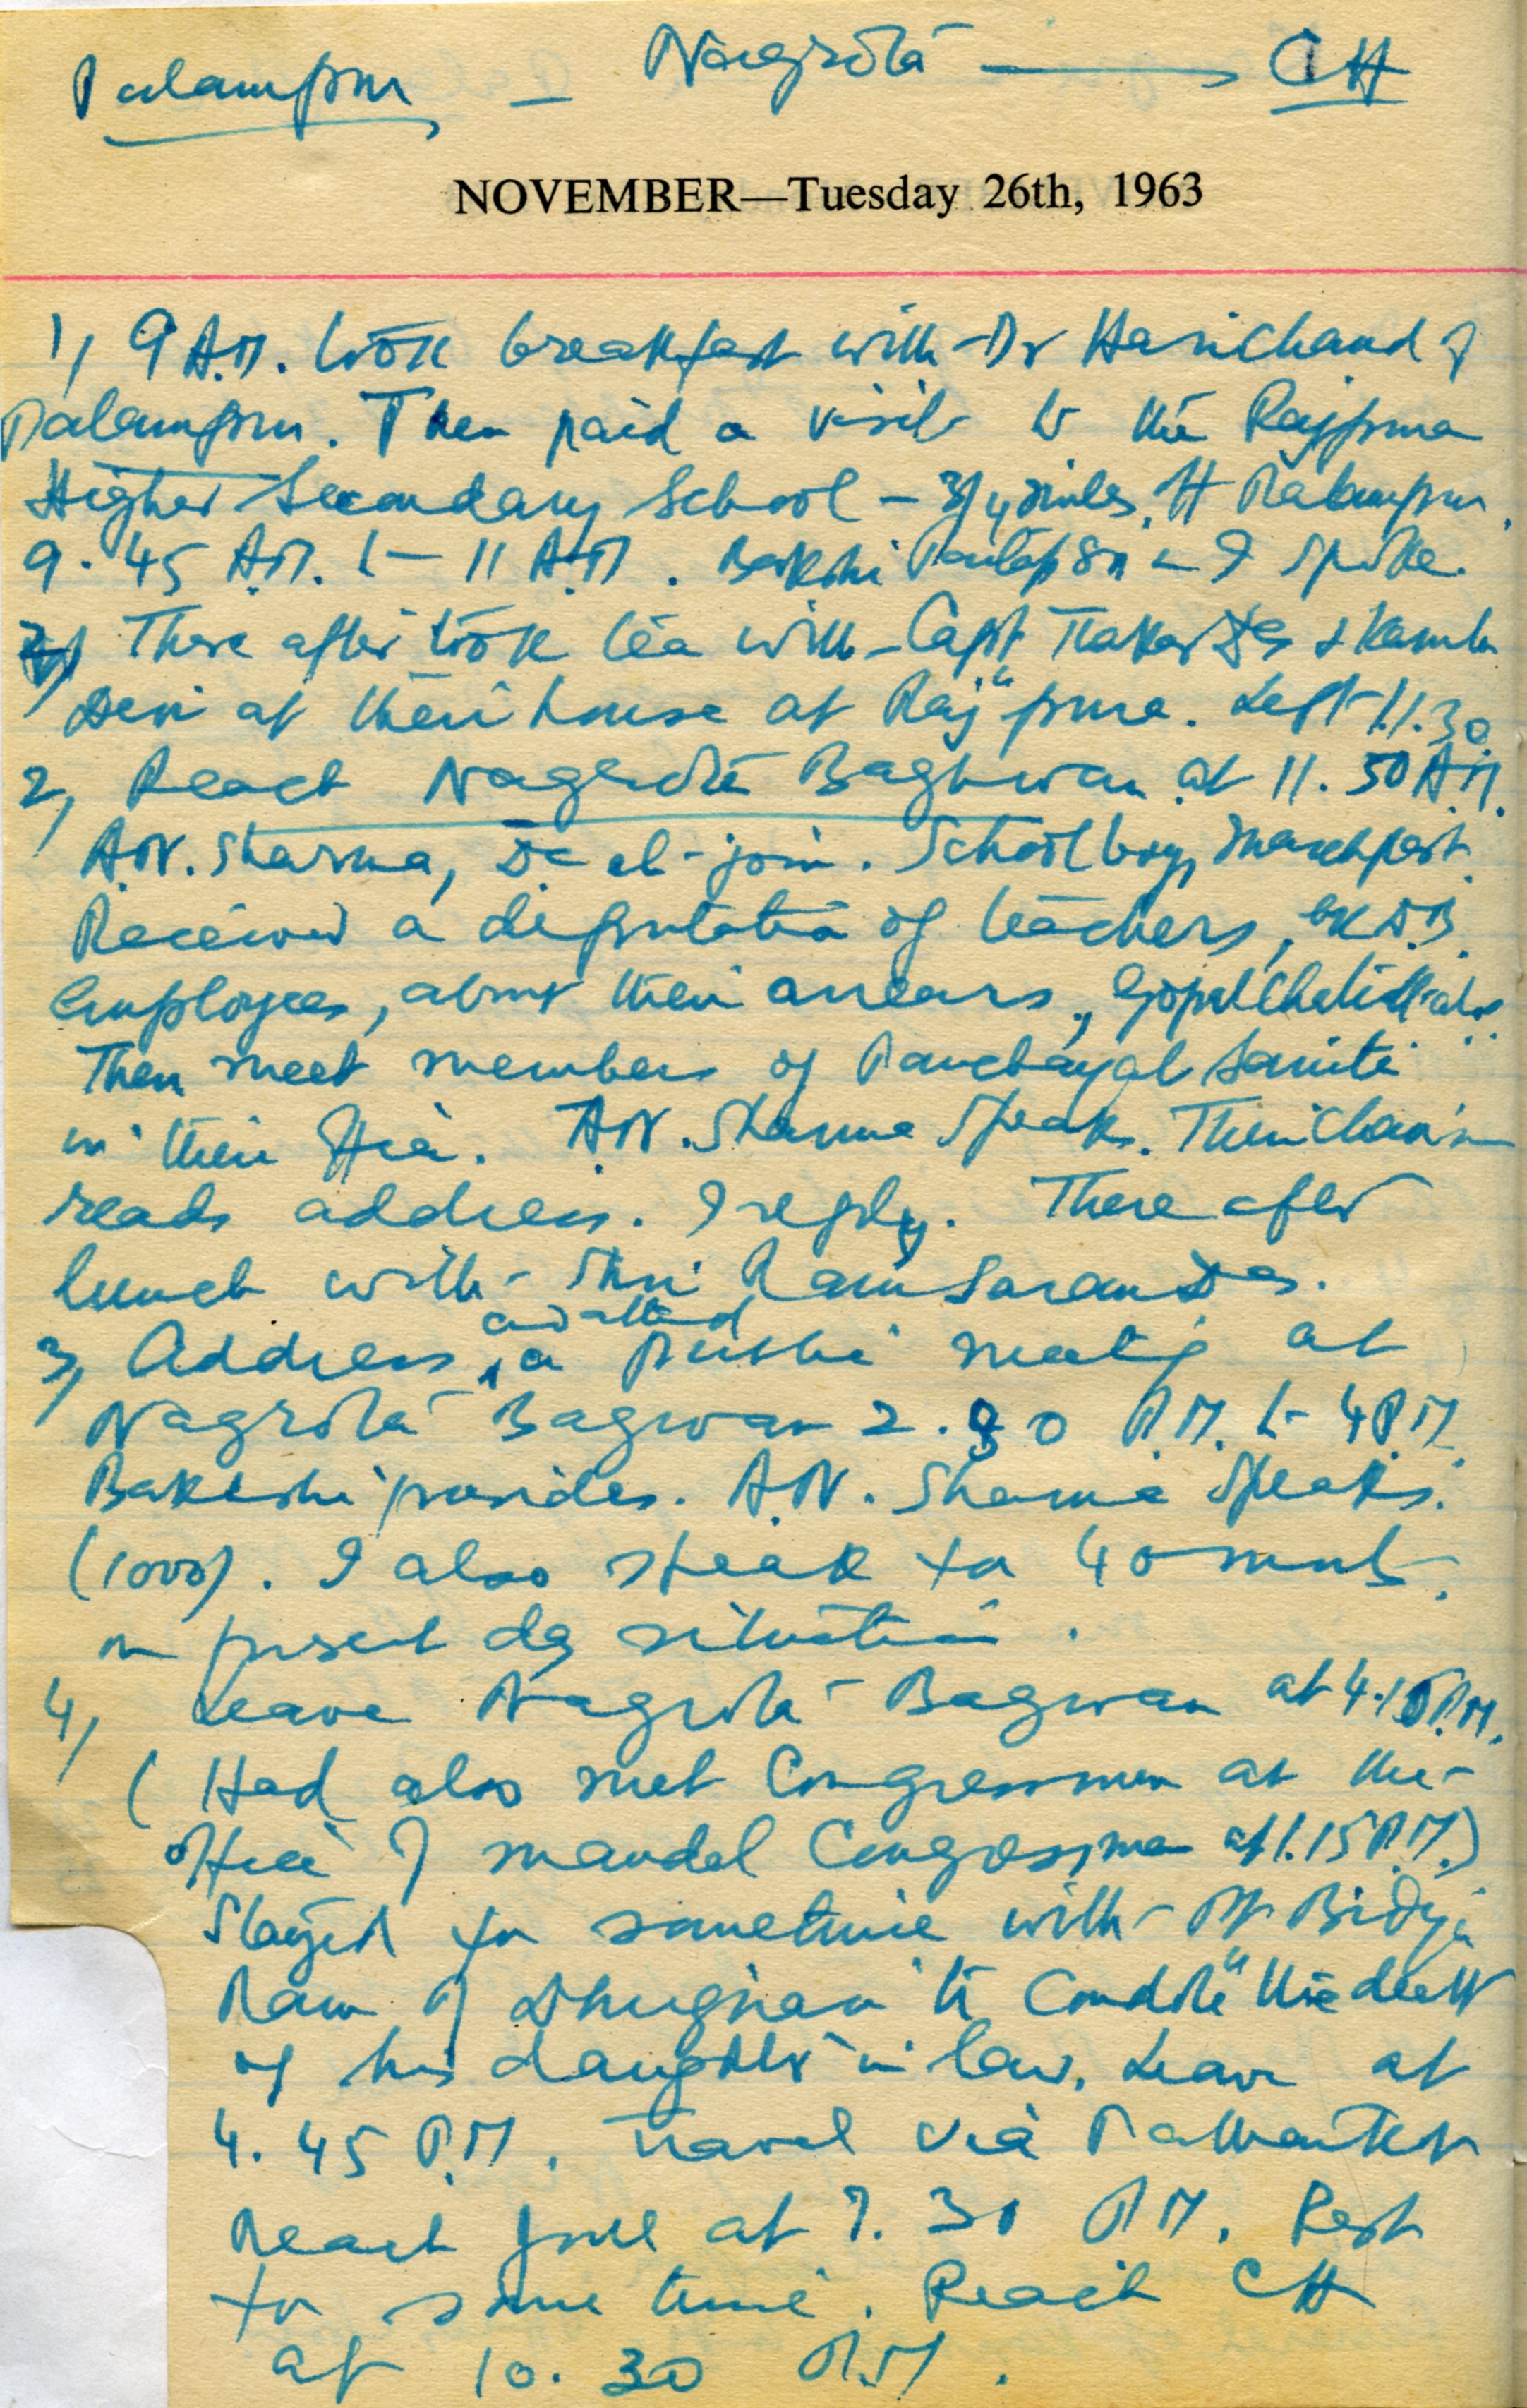 Palampur – Nagrota ——— CH
NOVEMBER—Tuesday 26th, 1963
1, 9 A.M. took breakfast with Dr Harichand of
Palampur. Then paid a visit to the Rajpura
Higher Secondary School – 3/4 miles Palampur.
9.45 A.M. to 11 A.M. Bakshi & I spoke.
There after took tea with Capt Thakar Das & Kamla
Devi at their house at Rajpura. Left 11.30
2, Reach Nagrota Baghwan at 11.50 A.M.
A.N. Sharma, Dc join. School boys march past.
Received a deputation of teachers, ex D.B.
employees, about their arrears,
Then meet members of Panchayat Samiti
in their office. A.N. Sharma speaks. Their Chairman
reads address. I reply. There after
lunch with Shri Ram Saran Das.
3, Address and attend a public meeting at
Nagrota Bagwan 2.30 P.M. to 4 P.M.
Bakshi presides. A.N. Sharma speaks.
(1000). I also speak for 40 mnts.
on present day situation.
4, Leave Nagrota Bagwan at 4.15 P.M.
( Had also met Congressmen at the
office of mandal Congressmen at 1.15 P.M.)
Stayed for sometime with Pt. Bidya
Ram of to condole the death
of his daughter in law. Leave at
4.45 P.M. Travel via Pathankot
Reach Jull at 7.30 P.M. Rest
for some time. Reach CH
at 10.30 P.M.